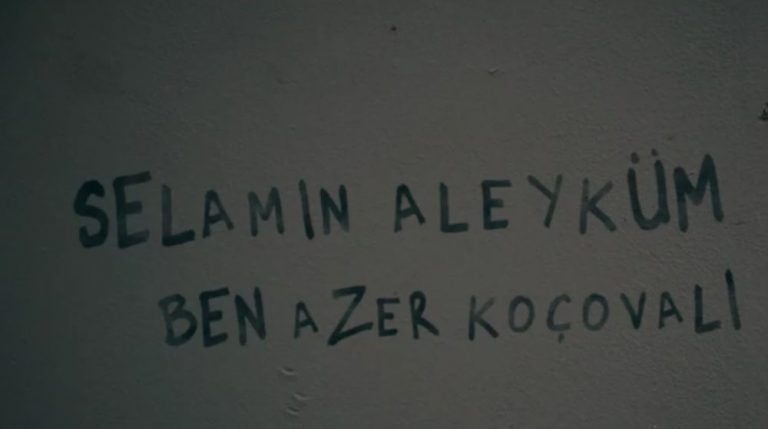 SELAMIN ALEYKÜM
BEN AZER KOÇOVALI